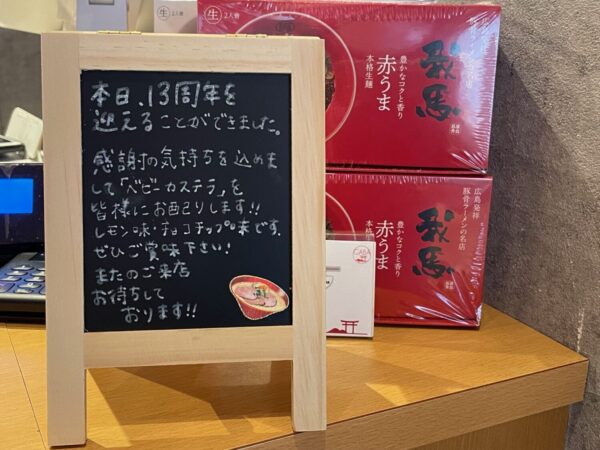 本日、13周年を
迎えることができました。
感謝の気持ちを込めま
して「ベビーカステラ」を
皆様にお配りします!!
レモン味・チョコチップ味です。
ぜひご賞味下さい!
またのご来店
お待ちして
おります!!
生 2人巻
豊かなコクと香り
赤うま
本格生麺
我馬
広島発祥
豚骨ラーメンの名店
豊かなコクと香り
赤うま
本格
我馬
GABA